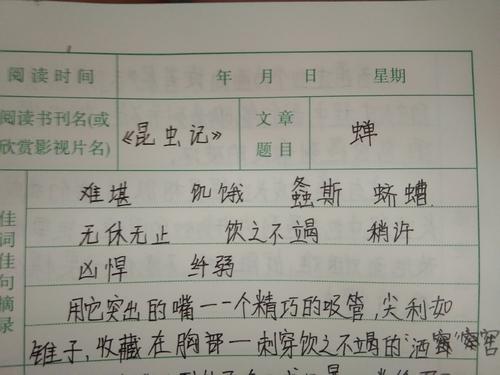 阅读时间 年 月 日 星期
阅读书刊名(或欣赏影视片名) 《昆虫记》 文章题目 蝉
佳词佳句摘录
难堪 饥饿 螽斯 蛴螬
无休无止 饮之不竭 稍许
凶悍 纤弱
用它突出的嘴一一个精巧的吸管,尖利如
锥子,收藏在胸部一刺穿饮之不竭的"酒窖"